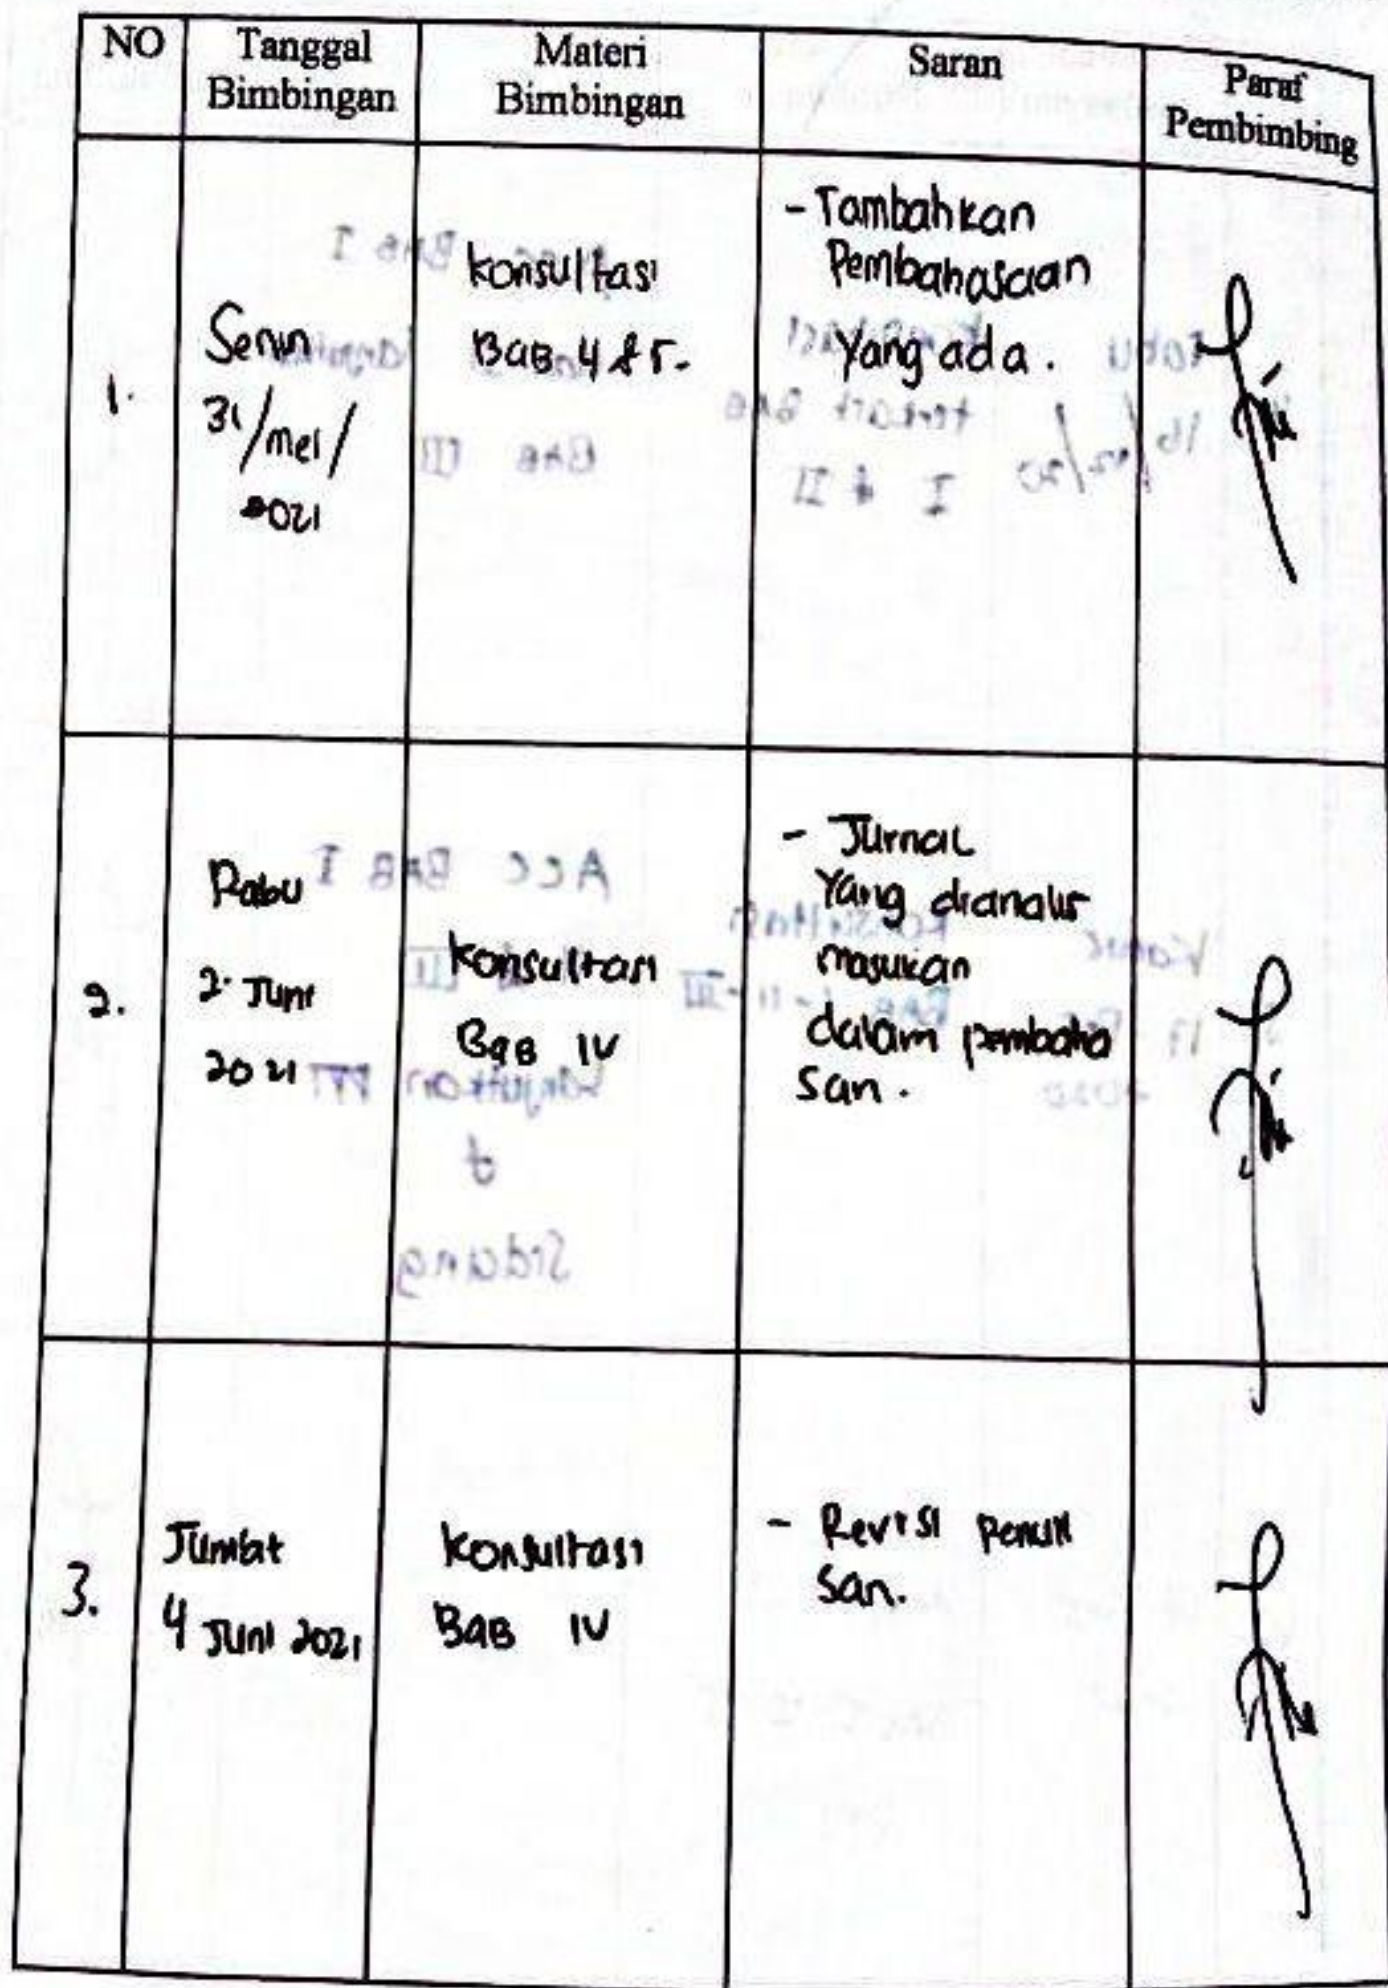 NO
Tanggal
Bimbingan
Materi
Bimbingan
Saran
Paraf
Pembimbing
1.
Senin
31/mei/
2021
Konsultasi
Bab 4 & 5.
- Tambahkan
Pembahasaan
Yang ada.
2.
Rabu
2. Juni
2021
Konsultasi
Bab IV
- Jurnal
Yang dianalis
masukan
dalam pembaha
san.
3.
Jumat
4 Juni 2021
Konsultasi
Bab IV
- Revisi Penuli
san.